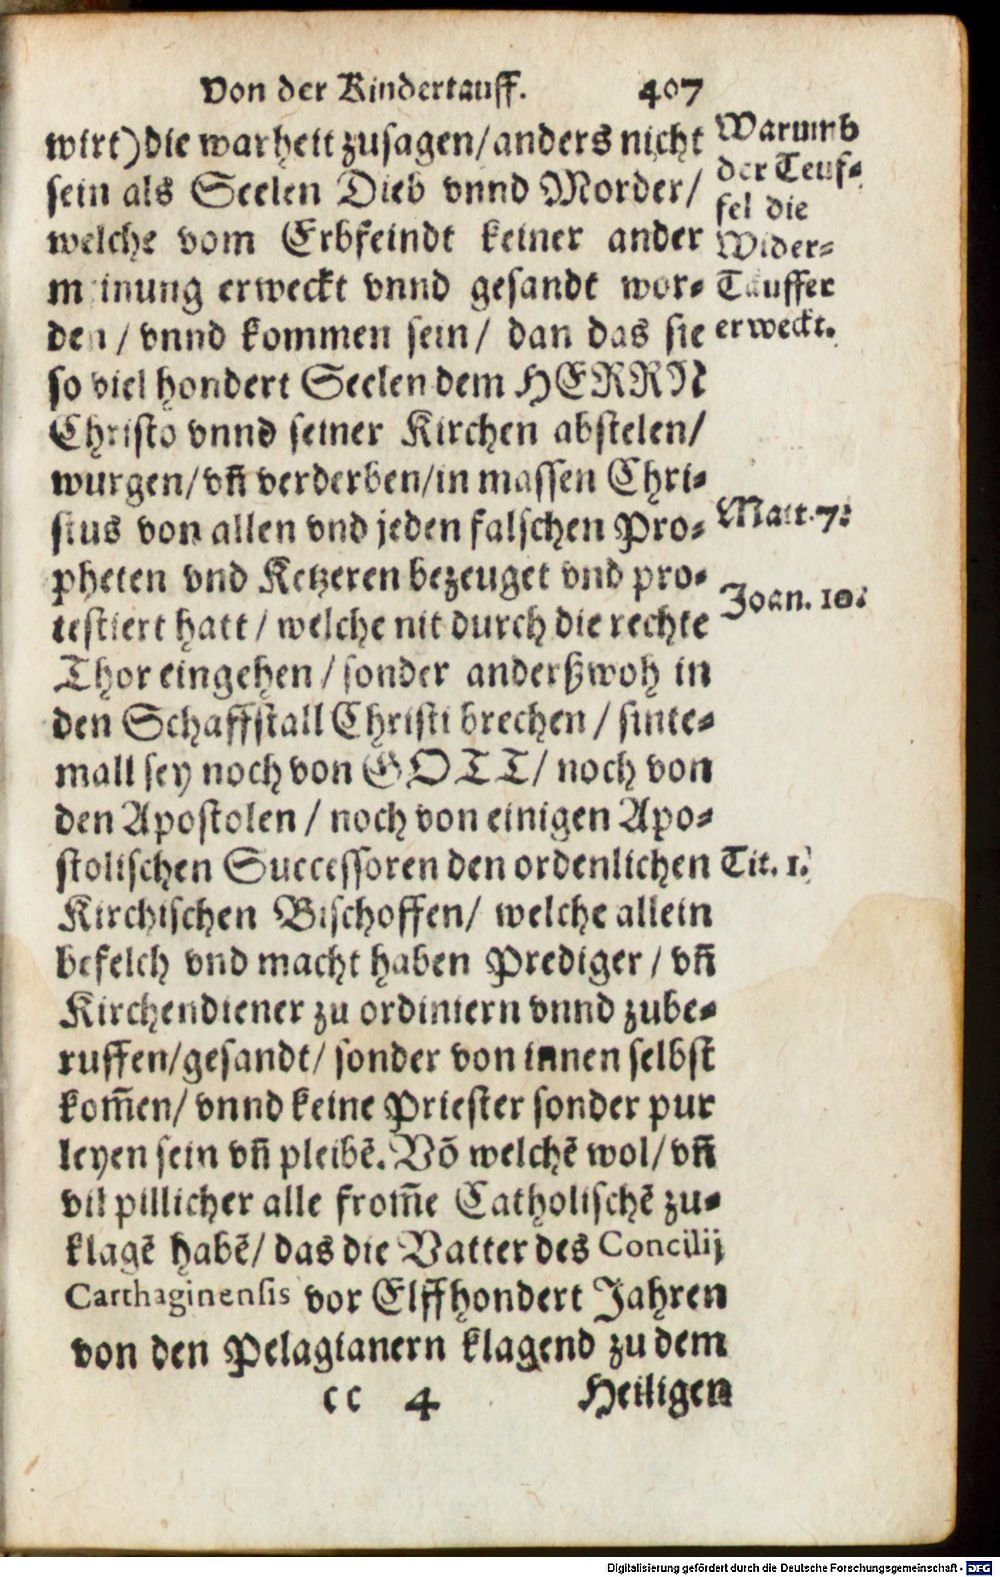 Von der Kindertauff. 407
wirt) die warheit zusagen/anders nicht
sein als Seelen Dieb vnnd Morder/
welche vom Erbfeindt keiner ander
meinung erweckt vnnd gesandt wor-
den/ vnnd kommen sein/ dan das sie
so viel hondert Seelen dem HERRN
Christo vnnd seiner Kirchen abstelen/
wurgen/vn̄ verderben/in massen Chri-
stus von allen vnd jeden falschen Pro-
pheten vnd Ketzeren bezeuget vnd pro-
testiert hatt/ welche nit durch die rechte
Thor eingehen/ sonder anderßwoh in
den Schaffstall Christi brechen/ sinte-
mall sey noch von GOTT/ noch von
den Apostolen/ noch von einigen Apo-
stolischen Successoren den ordenlichen
Kirchischen Bischoffen/ welche allein
befelch vnd macht haben Prediger/ vn̄
Kirchendiener zu ordiniern vnnd zube-
ruffen/gesandt/ sonder von innen selbst
kom̄en/ vnnd keine Priester sonder pur
leyen sein vn̄ pleibē. Vō welchē wol/ vn̄
vil pillicher alle from̄e Catholischē zu-
klagē habē/ das die Vatter des Concilij
Carthaginensis vor Elffhondert Jahren
von den Pelagianern klagend zu dem
cc 4 Heiligen
Warumb
der Teuf-
fel die
Wider-
Tauffer
erweckt.
Matt. 7.
Joan. 10.
Tit. 1.
Digitalisierung gefördert durch die Deutsche Forschungsgemeinschaft - DFG